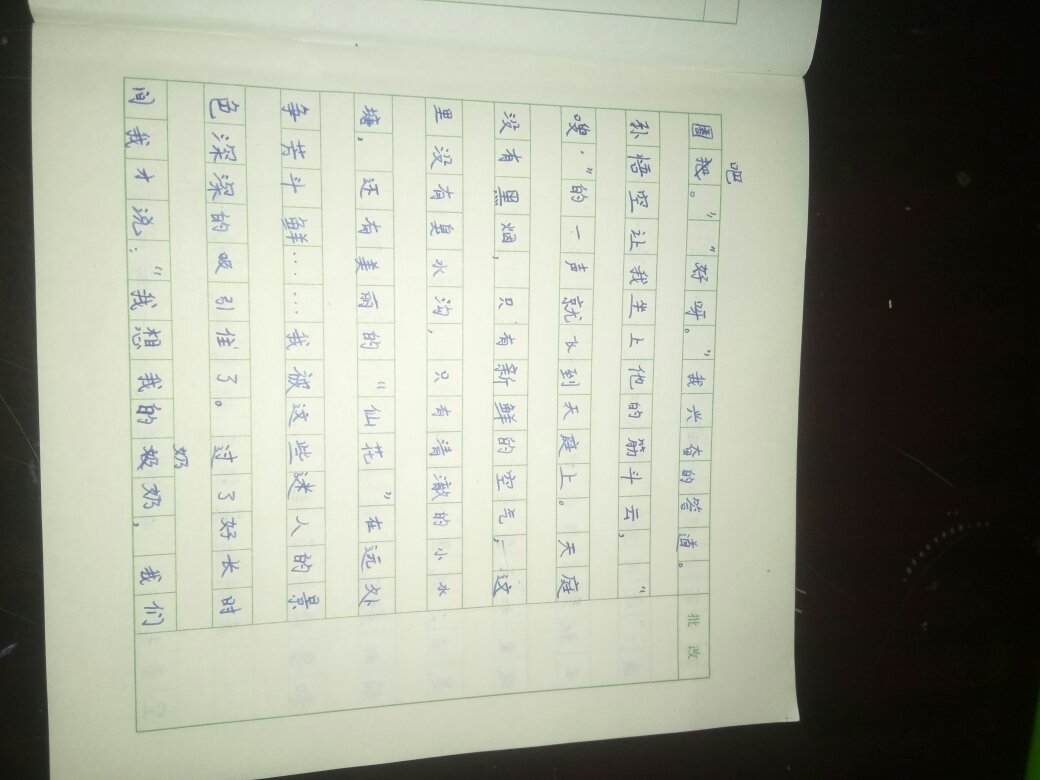 圈吧。”“好呀。”我兴奋的答道。
孙悟空让我坐上他的筋斗云，“
嗖·”的一声就飞到天庭上。天庭
没有黑烟，只有新鲜的空气，这
里没有臭水沟，只有清澈的小水
塘，还有美丽的“仙花”在远处
争芳斗鲜……我被这些迷人的景
色深深的吸引住了。过了好长时
间我才说：“我想我的奶奶，我们
批改